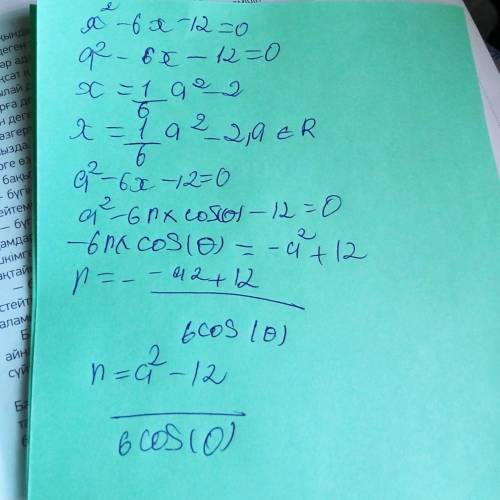 x² - 6x - 12 = 0
a² - 6x - 12 = 0
x = 1/6 a² - 2
x = 1/6 a² - 2, a ∈ R
a² - 6x - 12 = 0
a² - 6r × cos(θ) - 12 = 0
-6r × cos(θ) = -a² + 12
r = - -a2 + 12 / 6cos(θ)
r = a² - 12 / 6cos(θ)